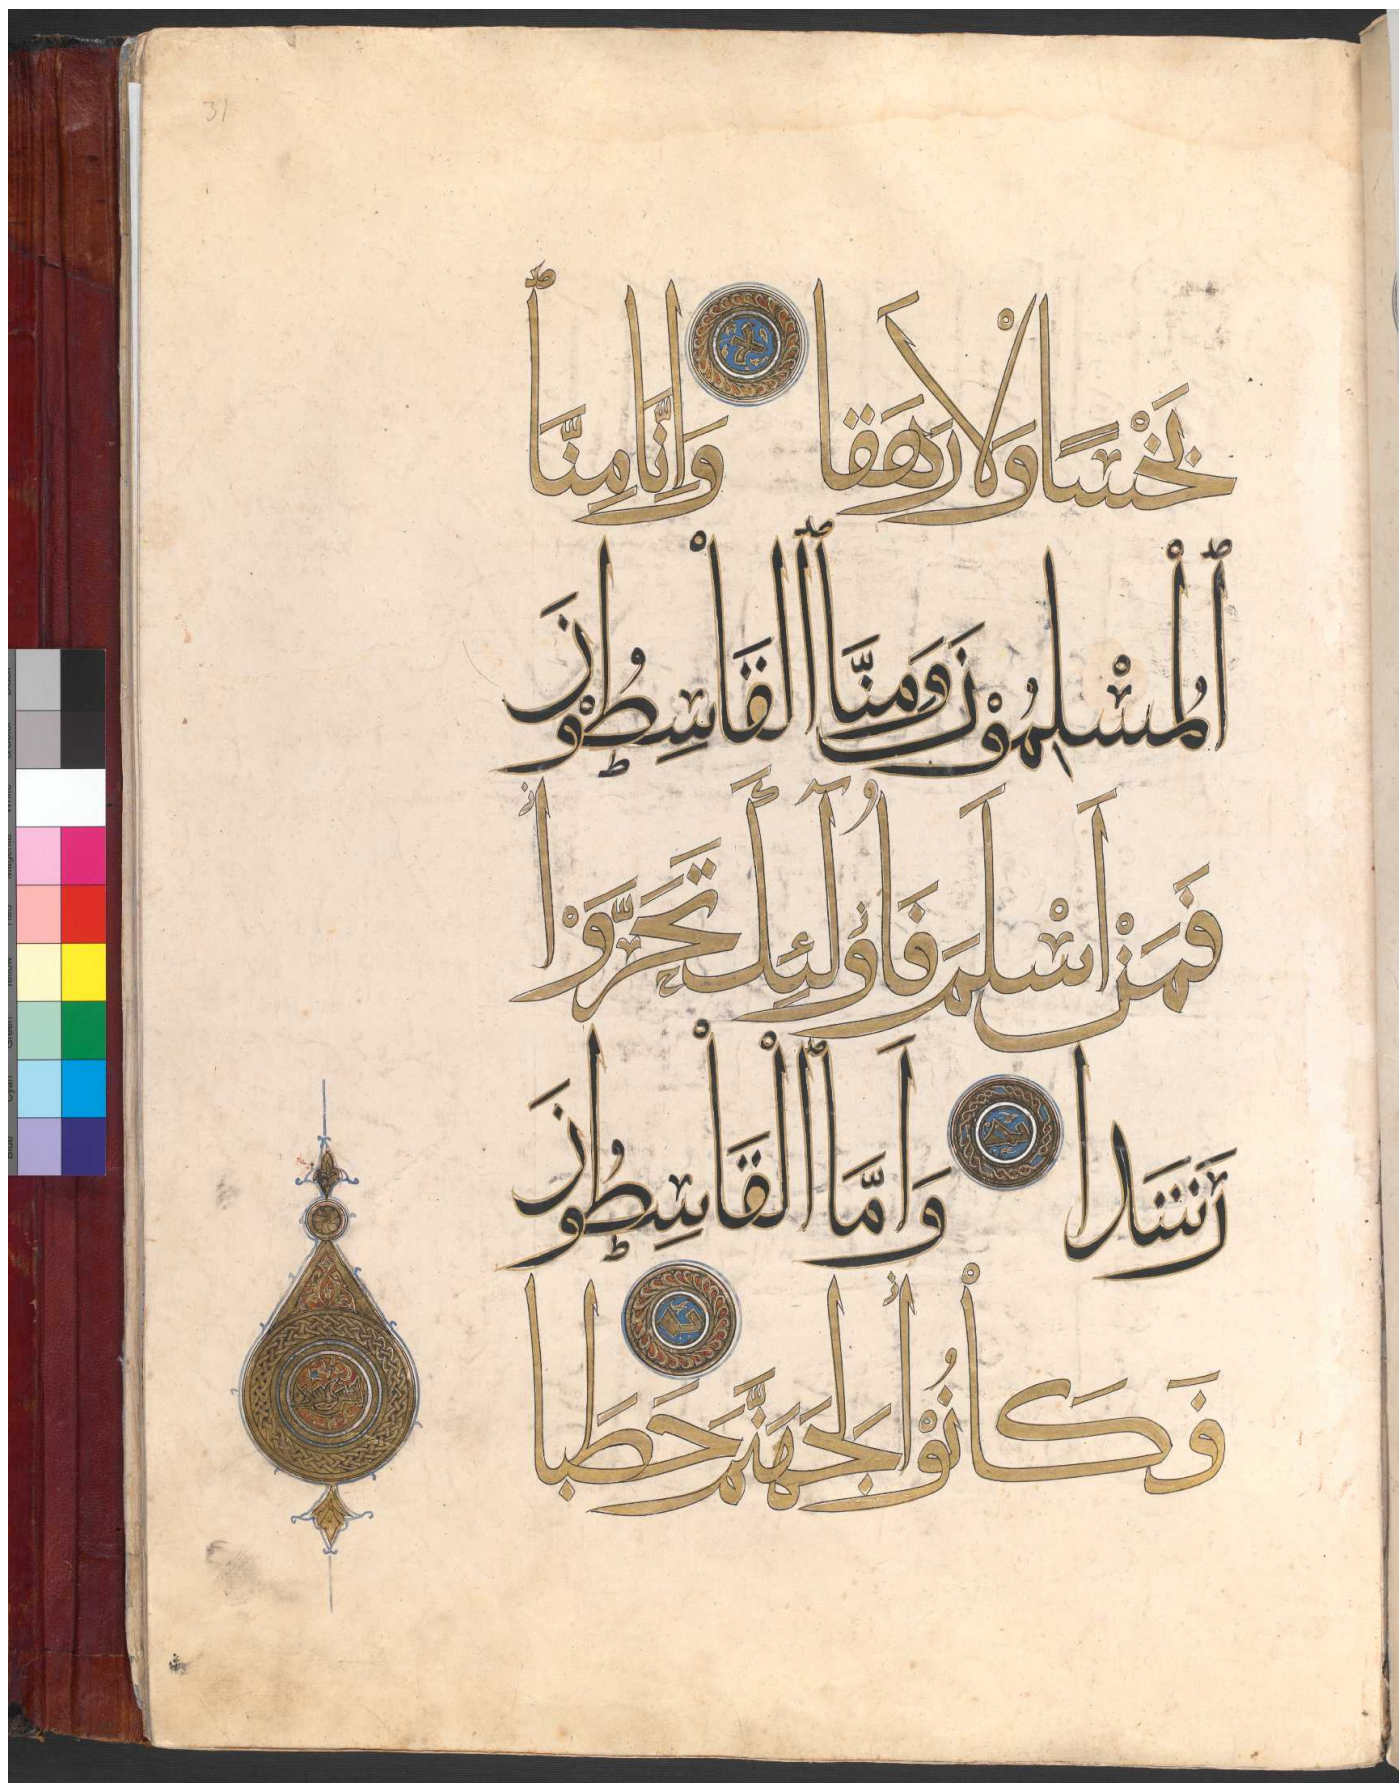 31
بَخْسًا وَلَا رَهَقا وَاِنَّا مِنَّا
ٱلْمُسْلِمُوْنَ وَمِنَّا ٱلْقَاسِطُوْنَ
فَمَنْ اَسْلَمَ فَاُولَٓئِكَ تَحَرَّوْا
رَشَدا وَاَمَّا ٱلْقَاسِطُوْنَ
فَكَانُوْا لِجَهَنَّمَ حَطَبا